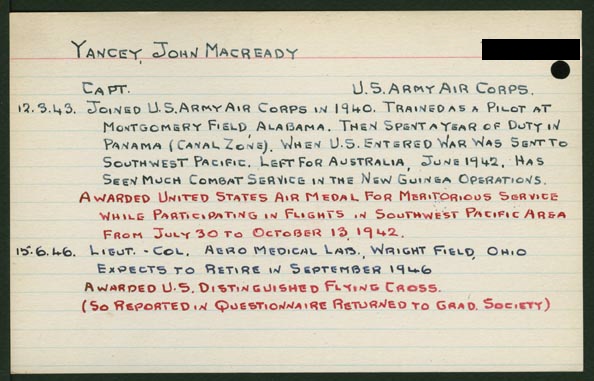 YANCEY, JOHN MACREADY
CAPT. U.S. ARMY AIR CORPS.
12.3.43. JOINED U.S. ARMY AIR CORPS IN 1940. TRAINED AS A PILOT AT
MONTGOMERY FIELD, ALABAMA. THEN SPENT A YEAR OF DUTY IN
PANAMA (CANAL ZONE). WHEN U.S. ENTERED WAR WAS SENT TO
SOUTHWEST PACIFIC. LEFT FOR AUSTRALIA, JUNE 1942. HAS
SEEN MUCH COMBAT SERVICE IN THE NEW GUINEA OPERATIONS.
AWARDED UNITED STATES AIR MEDAL FOR MERITORIOUS SERVICE
WHILE PARTICIPATING IN FLIGHTS IN SOUTHWEST PACIFIC AREA
FROM JULY 30 TO OCTOBER 13, 1942.
15.6.46. LIEUT.-COL. AERO MEDICAL LAB., WRIGHT FIELD, OHIO
EXPECTS TO RETIRE IN SEPTEMBER 1946
AWARDED U.S. DISTINGUISHED FLYING CROSS.
(SO REPORTED IN QUESTIONNAIRE RETURNED TO GRAD. SOCIETY)